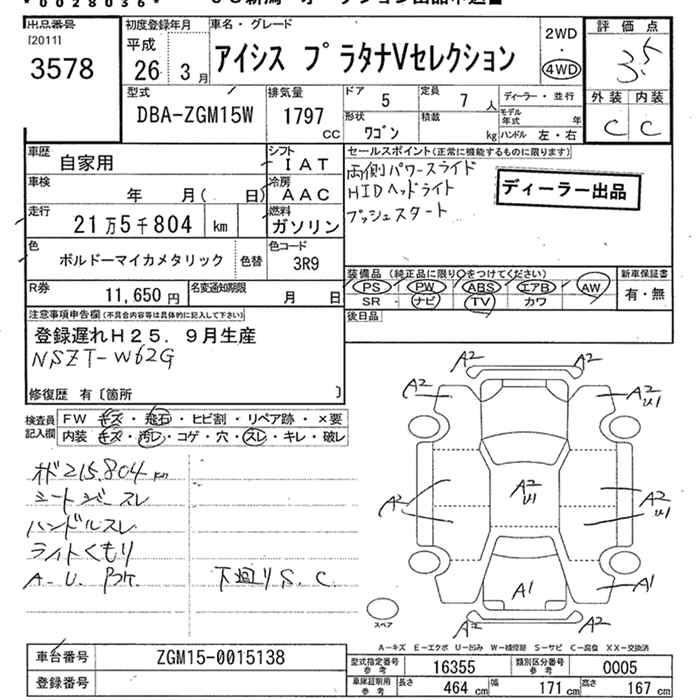 *0028036*
出品番号 初度登録年月 車名・グレード 2WD 評価点
[2011] 平成 ・
3578 26年 3月 アイシス プラタナVセレクション 4WD 3.5
型式 排気量 ドア 5 定員 7人 ディーラー・並行 外装 内装
DBA-ZGM15W 1797cc 形状 ワゴン 積載 kg モデル年式 年 C C
ハンドル 左・右
車歴 自家用 シフト IAT セールスポイント(正常に機能するものに限ります)
車検 年 月( 日) 冷房 AAC 両側パワースライド
HIDヘッドライト
プッシュスタート
ディーラー出品
走行 21万5千804 km 燃料 ガソリン
色 ボルドーマイカメタリック 色替 色コード 3R9
装備品(純正品に限り○をつけてください) 新車保証書
R券 11,650円 名変通知期限 月 日 PS PW ABS エアB AW 有・無
SR ナビ TV カワ
注意事項申告欄(不具合内容等は具体的に記入して下さい) 後日品
登録遅れH25.9月生産
NSZT-W62G
修復歴 有〔箇所 〕
検査員記入欄 FW キズ・飛石・ヒビ割・リペア跡・×要
内装 キズ・汚レ・コゲ・穴・スレ・キレ・破レ
オド215.804km
シートジャースレ
ハンドルスレ
ライトくもり
A.U.
下廻りS.C.
A2 A2
A2 A2 U1
A2 A2 U1 A2 U1
A1 A1
A2 A2
スペア
A-キズ E-エクボ U-凹み W-補修跡 S-サビ C-腐食 XX-交換済
車台番号 ZGM15-0015138 型式指定番号 参考 16355 類別区分番号 参考 0005
登録番号 車庫証明用 参考 長さ 464cm 幅 171cm 高さ 167cm